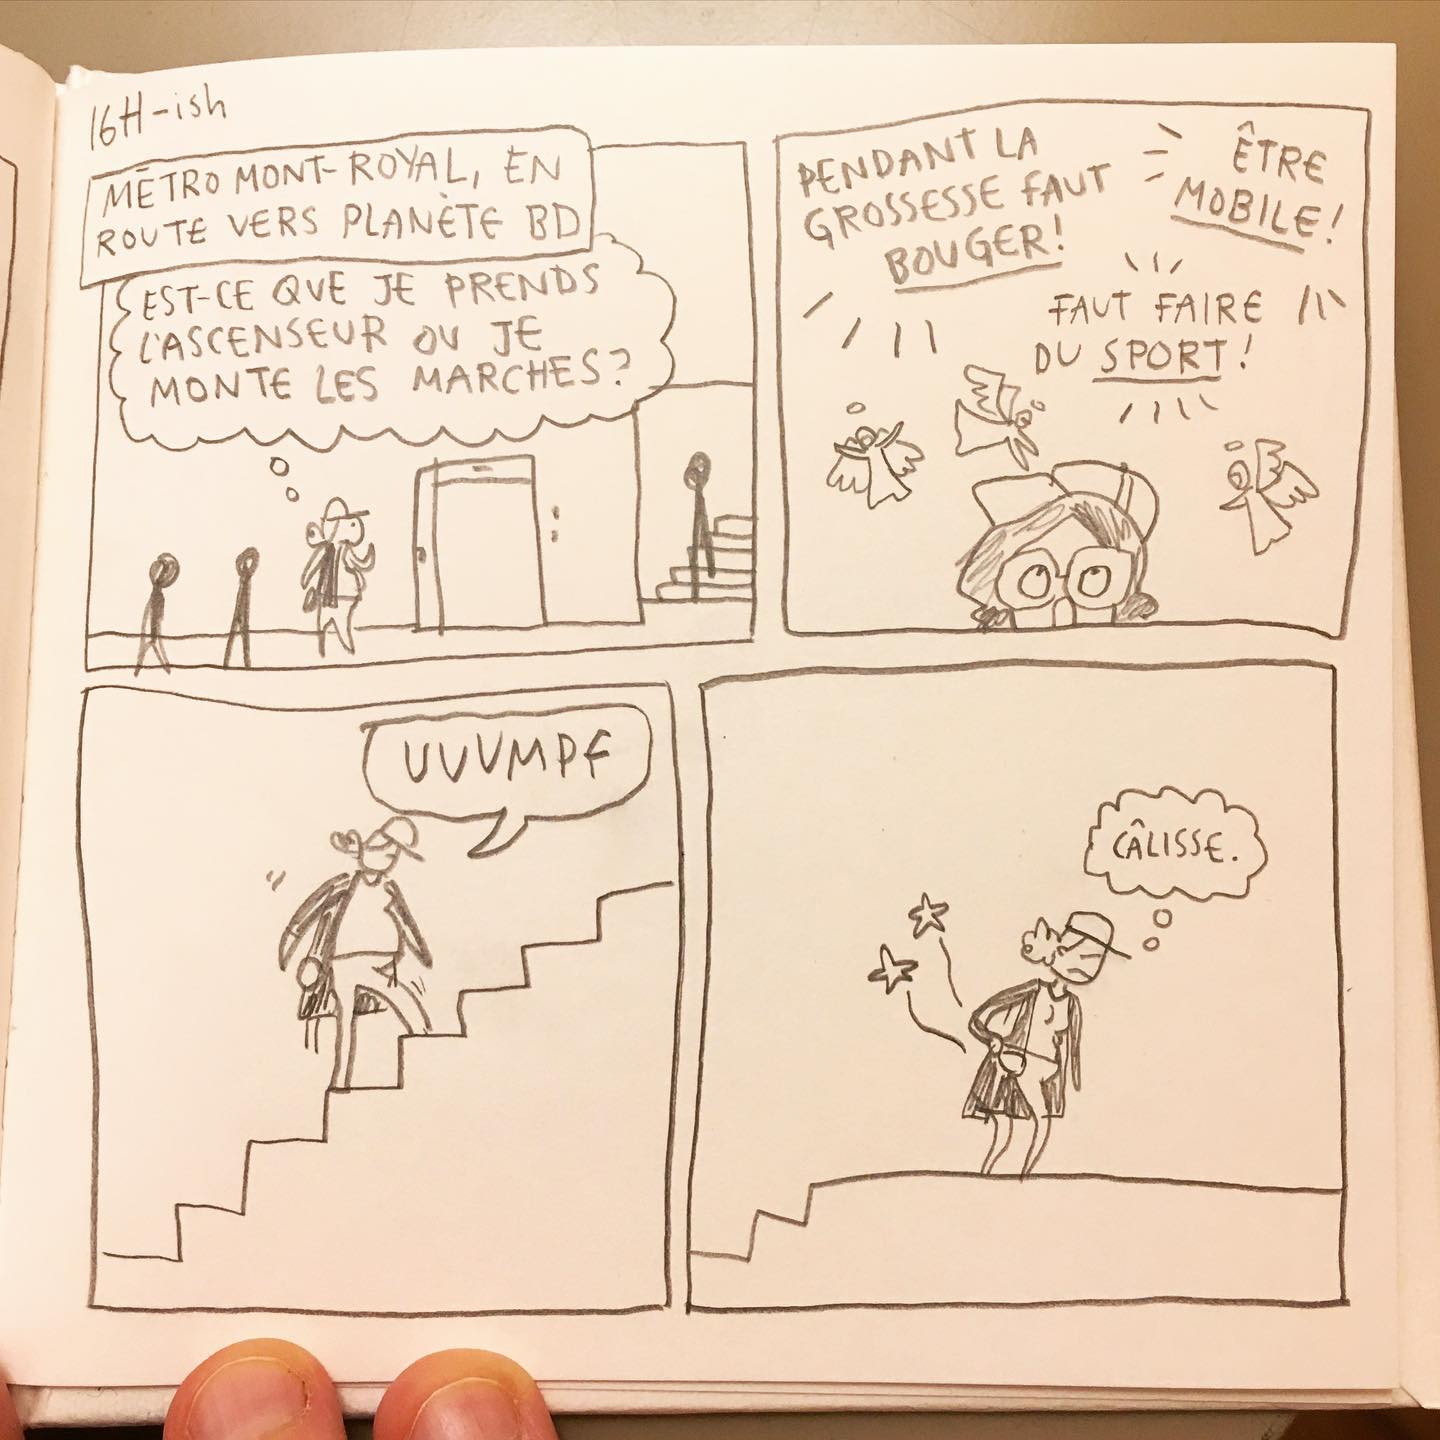 16H-ish
MÉTRO MONT-ROYAL, EN
ROUTE VERS PLANÈTE BD
EST-CE QUE JE PRENDS
L'ASCENSEUR OU JE
MONTE LES MARCHES?
PENDANT LA
GROSSESSE FAUT
BOUGER!
ÊTRE
MOBILE!
FAUT FAIRE
DU SPORT!
UUUMPF
CÂLISSE.